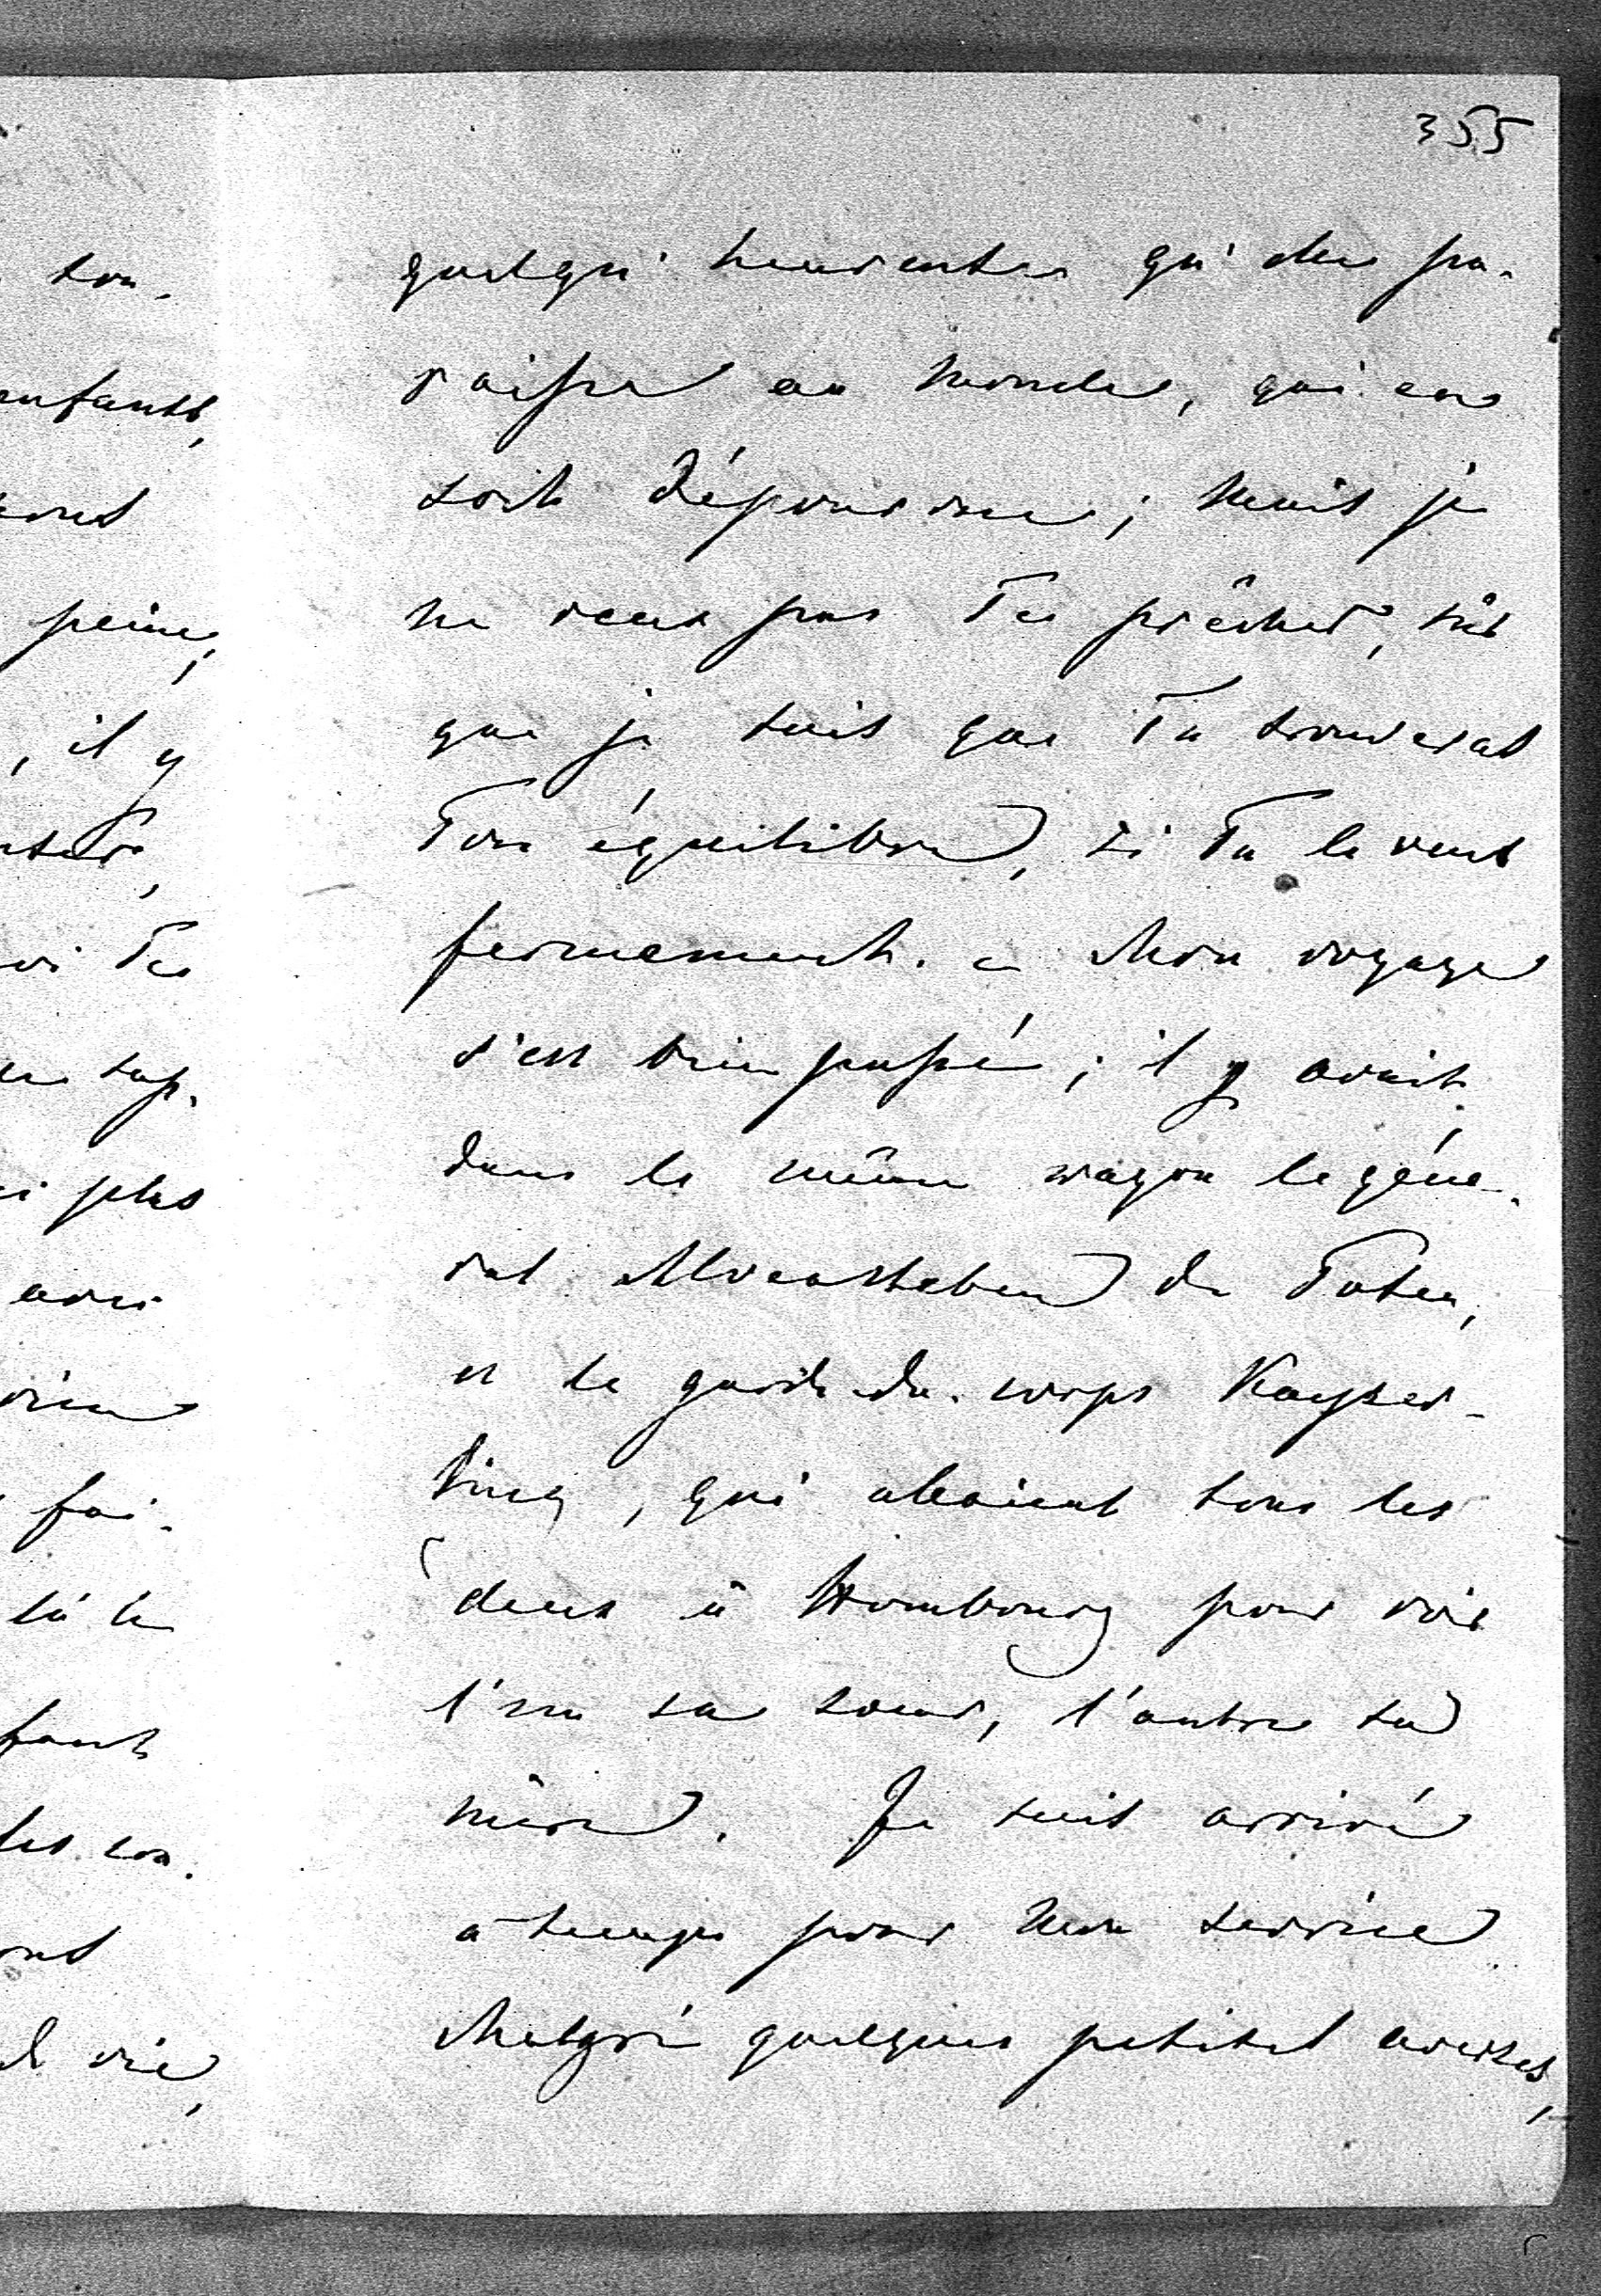 355
quelqu' heureuse qu'elle pa-
raisse au monde, qui en
soit dépourvue; mais je
ne veux pas Te prêcher, sûr
que je suis que Tu trouveras
Ton équilibre, si Tu le veux
fermement. – Mon voyage
s'est bien passé; il y avait
dans le même wagon le géné-
ral Alvensleben de Posen,
et le garde-du-corps Kayser-
ling, qui allaient tous les
deux à Hombourg pour voir
l'un sa soeur, l'autre sa
mère. Je suis arrivé
à temps pour mon service
Malgré quelques petites averses,
son-
enfants,
peine,
, il y
Te
sup-
plus
avec
rien
fai-
là le
les con-
vie,